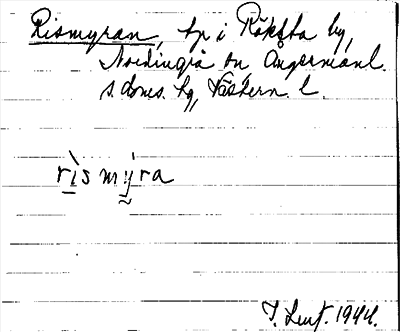 Rismyran, tp i Röksta by,
Nordingrå sn Ångermanl.
s. doms. hg, Västern. l.
rìs mỳra
1944.